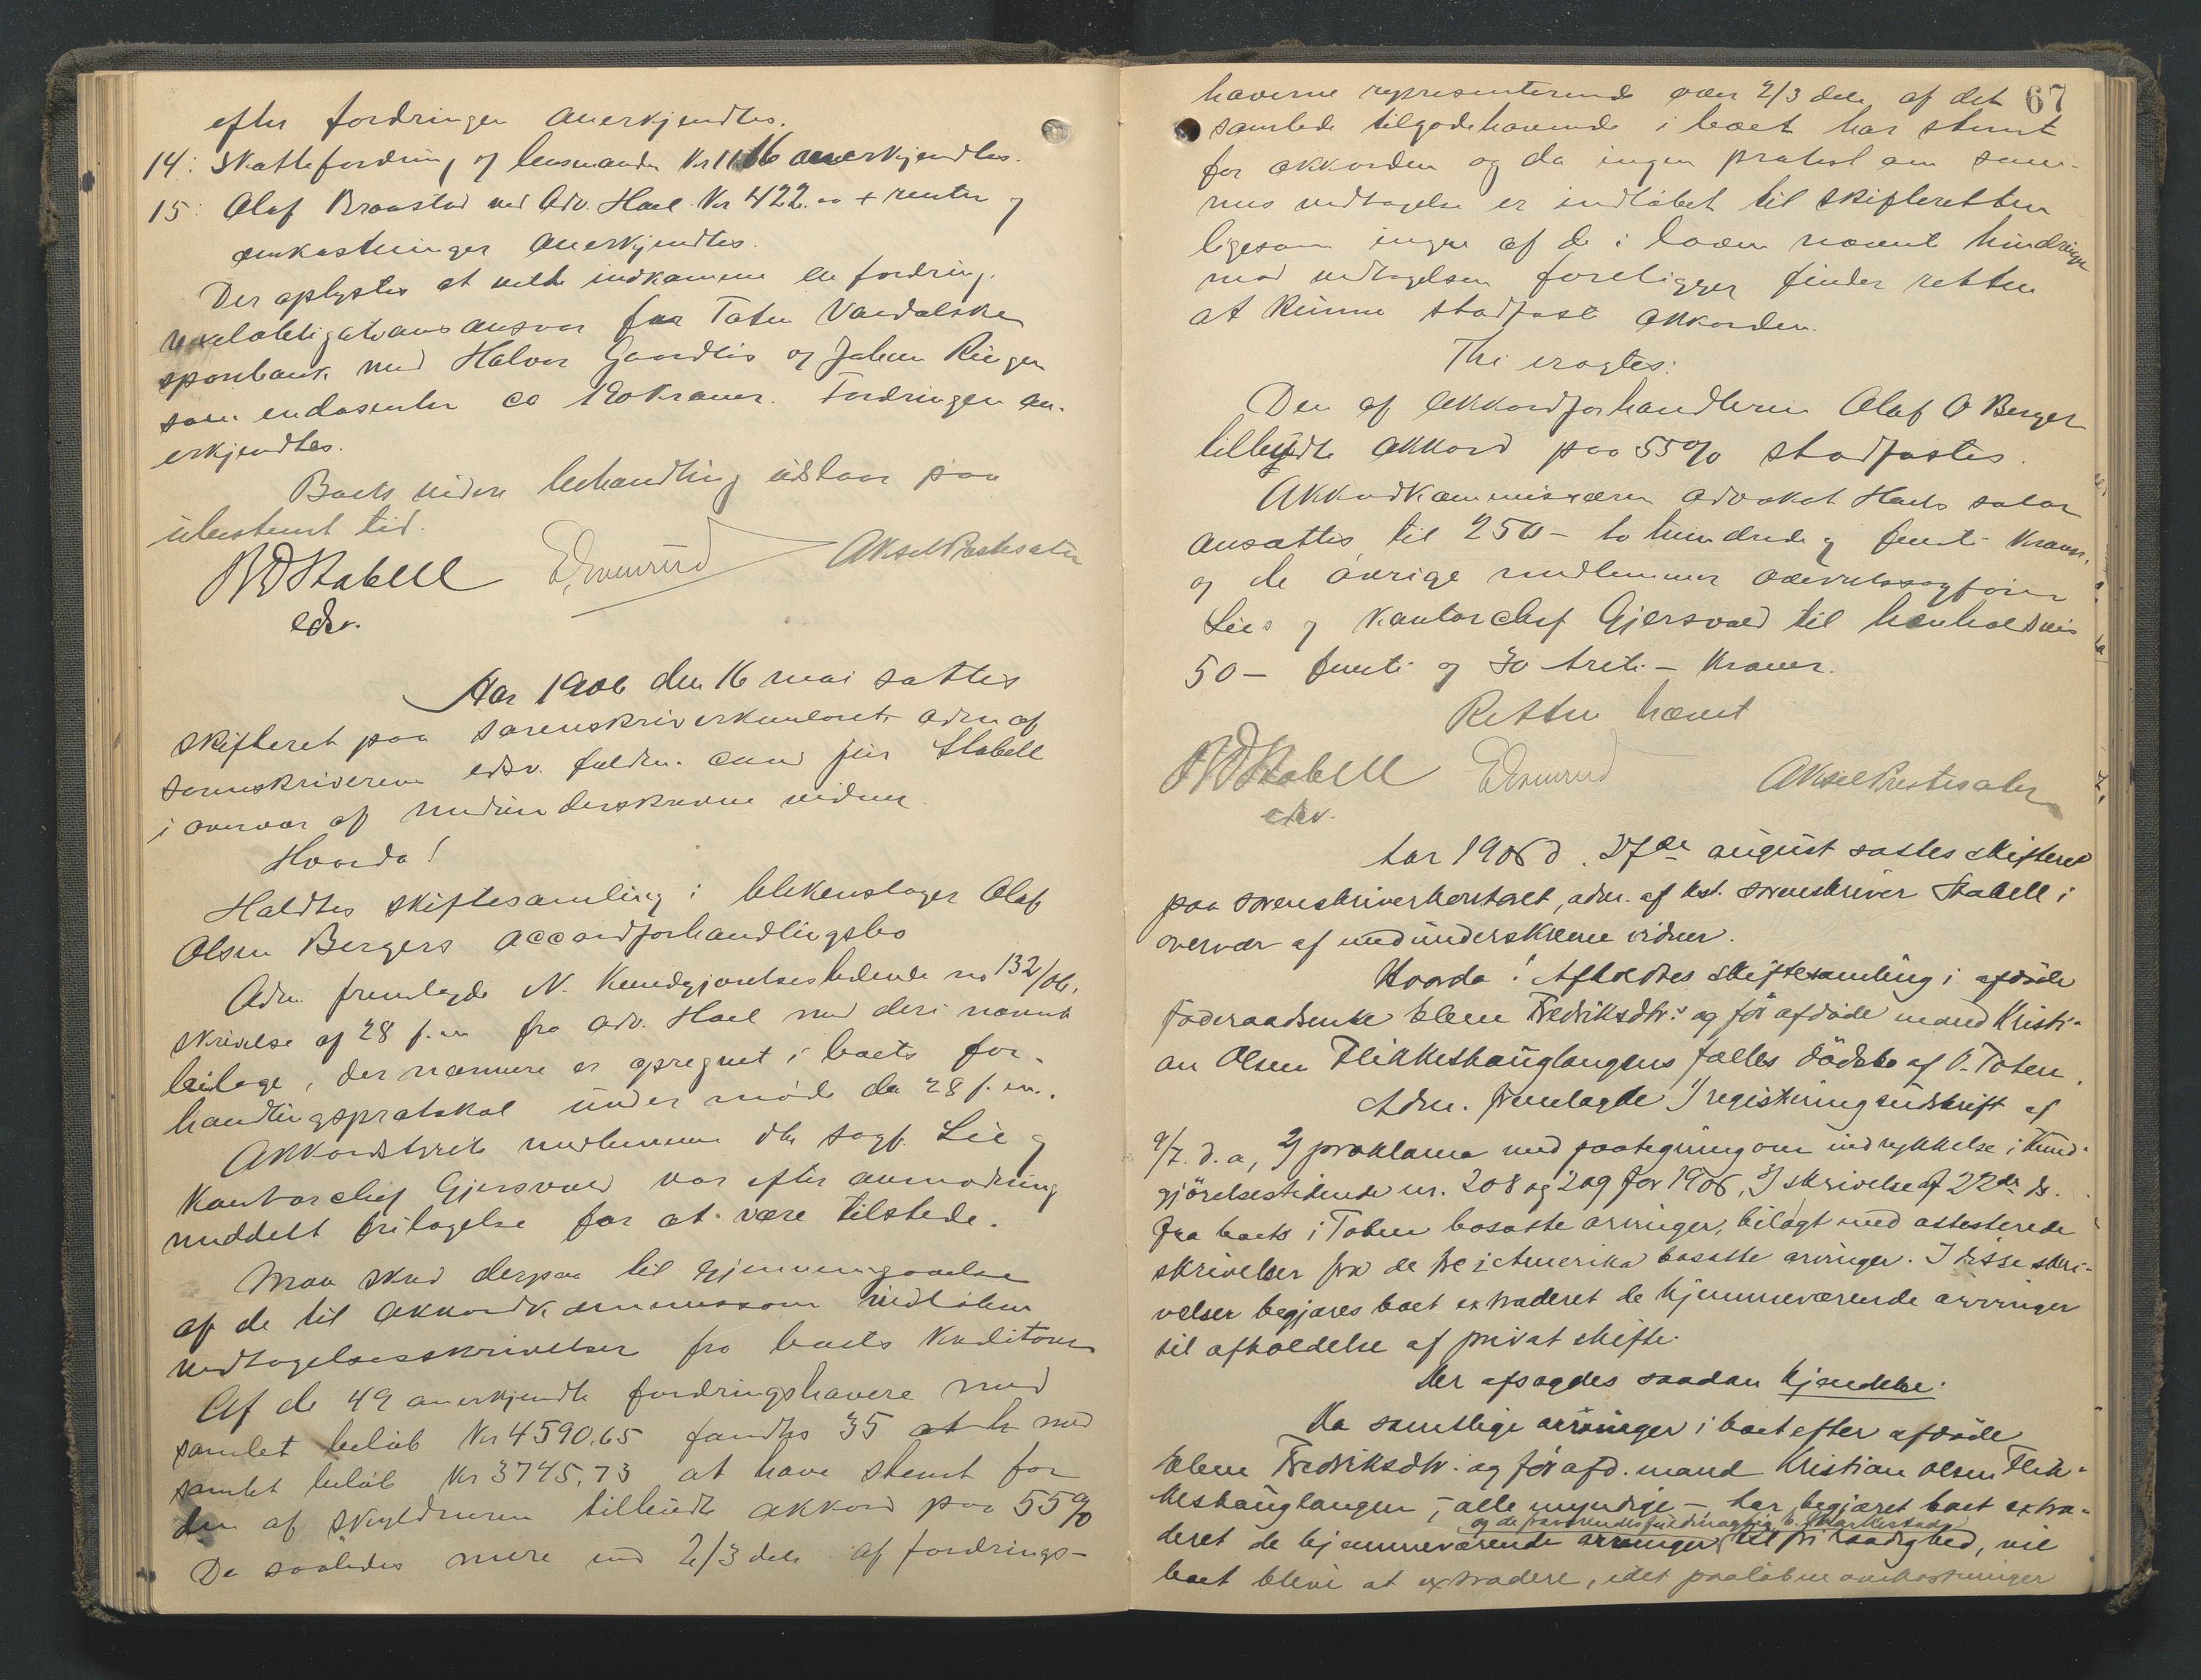 efter fordringen anerkjendtes.
14: Skattefordring og lensmanden Kr 11.16 anerkjendtes.
15: Olaf Braastad ved Adv. Hoel Kr 422.00 + renter og
omkostninger anerkjendtes.
Der oplystes at vilde indkomme en fordring
vexelobligationsansvar for Toten Vardalske
sparebank med Halvor Gaardlös og Johan Ringen
som endosenter ca 190 kroner. Fordringen an-
erkjendtes.
Boets videre behandling udstaar paa
ubestemt tid.
Stabell
edsv.
Evenrud
Aksel Prestesæter
Aar 1906 den 16 mai sattes
skifteret paa sorenskriverkontoret adm af
sorenskriverens edsv. fuldm. cand jur Stabell
i overvær af medunderskrevne vidner.
Hvorda!
Holdtes skiftesamling i blikenslager Olaf
Olsen Bergers accordforhandlingsbo
Adm fremlagde N. Kundgjørelsestidende no 132/06,
skrivelse af 28 f.m fra adv. Hoel med deri nævnte
beilage, der nærmere er opregnet i boets for-
handlingsprotokol under møde da 28 f.m.
Akkordstyrets medlemmer Ovr sagf. Lie og
kontorchef Gjersvold var efter anmodning
meddelt fritagelse for at være tilstede.
Man skred derpaa til gjennemgaaelse
af de til akkordkommissæren indløbne
vedtagelsesskrivelser fra boets kreditorer
Af de 49 anerkjendte fordringshavere med
samlet beløb Kr 4590.65 fandtes 35 med
samlet beløb Kr 3745,73 at have stemt for
den af skyldneren tilbudte akkord paa 55%
Da saaledes mere end 2/3 dele af fordrings-
67
haverne representerende over 2/3 dele af det
samlede tilgodehavende i boet har stemt
for akkorden og da ingen protest om sam-
mes vedtagelse er indløbet til skifteretten
ligesom ingen af de i loven nævnte hindringer
mod vedtagelsen foreligger finder retten
at kunne stadfæste akkorden.
Thi eragtes:
Den af akkordforhandleren Olaf O Berger
tilbydte akkord paa 55% stadfæstes.
Akkordkommissæren advokat Hoels salær
ansættes til 250 - to hundrede og femti kroner,
og de øvrige medlemmer overretssagfører
Lies og kontorchef Gjersvold til henholdsvis
50 - femti og 30 treti - kroner.
Retten hævet
Stabell
edsv.
Evenrud
Aksel Prestesæter
Aar 1906 d. 27de august sattes skifteret
paa sorenskriverkontoret, adm. af kst. sorenskriver Stabell i
overvær af medunderskrevne vidner.
Hvorda! Afholdtes skiftesamling i afdøde
føderaadsenke Elene Fredriksdtr: og før afdøde mand Kristi-
an Olsen Flikkeshauglangens fælles dødsbo af Ö. Toten.
Adm. fremlagde 1) registreringsudskrift af
9/7. d. a, 2) proklama med paategning om indrykkelse i Kund-
gjørelsestidende nr. 208 og 209 for 1906, 3) skrivelse af 22de ds.
fra boets i Toten bosatte arvinger, bilagt med attesterede
skrivelser fra de tre i Amerika bosatte arvinger. I disse skri-
velser begjæres boet extraderet de hjemmeværende arvinger
til afholdelse af privat skifte.
Der afsagdes saadan kjendelse:
Da samtlige arvinger i boet efter afdøde
Elene Fredriksdtr. og før afd. mand Kristian Olsen Flik-
keshauglangen, - alle myndige - har begjæret boet extra-
og de fraværendes fuldmægtig
deret de hjemmeværende arvinger til fri raadighed, vil
boet blive at extradere, idet paaløbne omkostninger